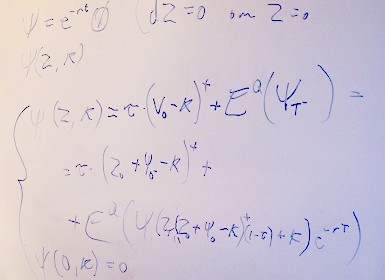 ψ = e^{-rt} (dZ=0 om Z=0
ψ(Z, K)
ψ(Z, K) = τ·(V₀-K)⁺ + E^Q(ψ_T) =
= τ·(Z₀+ψ₀-K)⁺ +
+ E^Q(ψ(Z₀+ψ₀-K)⁺(1-τ)+K)e^{-rT})
ψ(0,K)=0